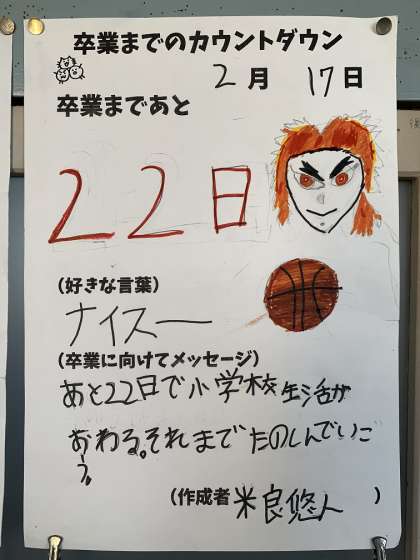 卒業までのカウントダウン
2月 17日
卒業まであと
22日
(好きな言葉)
ナイスー
(卒業に向けてメッセージ)
あと22日で小学校生活が
おわる。それまでたのしんでいこ
う。
(作成者 米良悠人 )